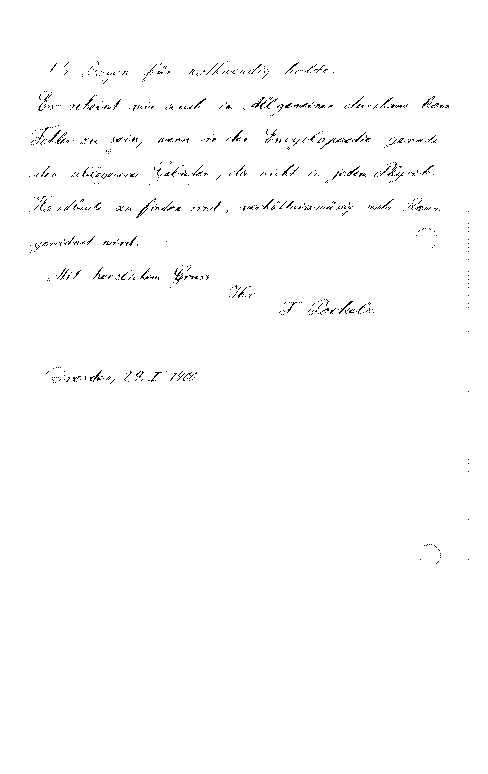 1½ Bogen für nothwendig halte.
Es scheint mir auch im Allgemeinen durchaus kein
Fehler zu sein, wenn in der Encyclopaedie gerade
den abliegenden Gebieten, die nicht in jedem Physik-
Handbuch zu finden sind, verhältnissmässig mehr Raum
gewidmet wird.
Mit herzlichem Gruss
Ihr
F. Pockels.
Dresden, 29. I 1900